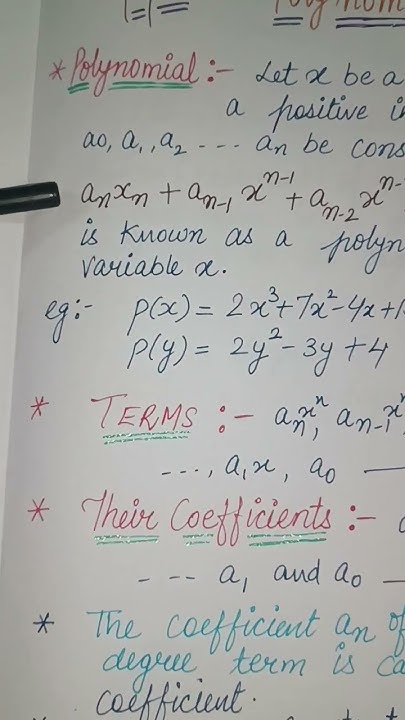 Polynom
* Polynomial :- Let x be a
a positive i
a0, a1, a2 --- an be cons
anxn + an-1 x^n-1 + an-2 x^n-
is known as a polyn
variable x.
eg:- p(x) = 2x³+7x²-4x+1
p(y) = 2y²-3y+4
* TERMS :- anx^n, an-1x^n
---, a1x, a0 —
* Their Coefficients :-
- -- a1 and a0 —
* The coefficient an of
degree term is ca
coefficient.